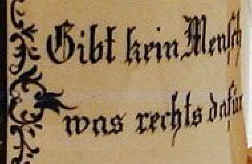 Gibt kein Mensch
was rechts dafür